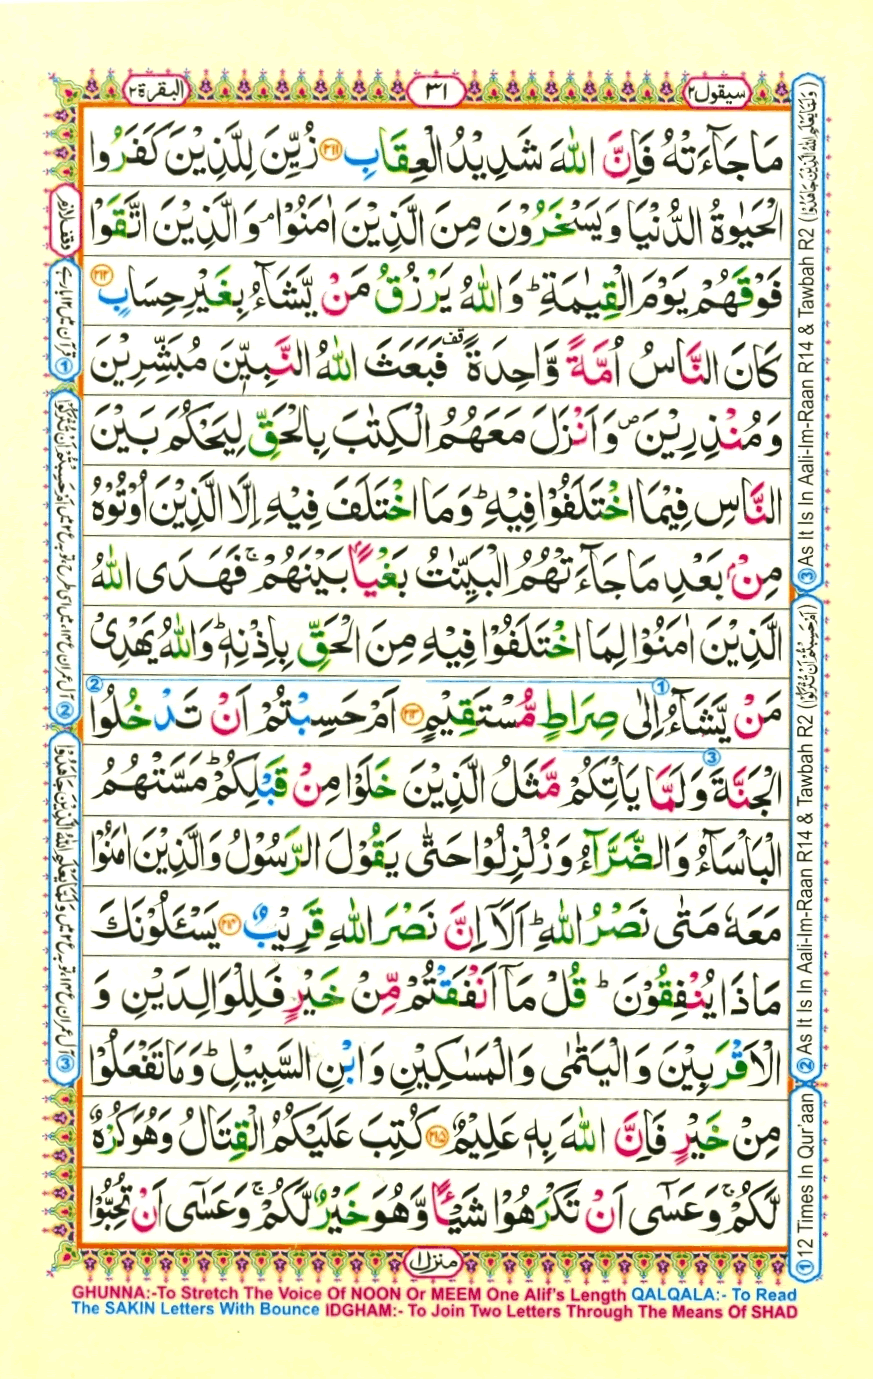 سيقول٢
٣١
البقرة٢
مَا جَآءَتْهُ فَاِنَّ اللّٰهَ شَدِيْدُ الْعِقَابِ ﴿٢١١﴾ زُيِّنَ لِلَّذِيْنَ كَفَرُوا
الْحَيٰوةُ الدُّنْيَا وَيَسْخَرُوْنَ مِنَ الَّذِيْنَ اٰمَنُوْا ۘ وَالَّذِيْنَ اتَّقَوْا
فَوْقَهُمْ يَوْمَ الْقِيٰمَةِ ؕ وَاللّٰهُ يَرْزُقُ مَنْ يَّشَآءُ بِغَيْرِ حِسَابٍ ﴿٢١٢﴾
كَانَ النَّاسُ اُمَّةً وَّاحِدَةً قف فَبَعَثَ اللّٰهُ النَّبِيّٖنَ مُبَشِّرِيْنَ
وَمُنْذِرِيْنَ ص وَاَنْزَلَ مَعَهُمُ الْكِتٰبَ بِالْحَقِّ لِيَحْكُمَ بَيْنَ
النَّاسِ فِيْمَا اخْتَلَفُوْا فِيْهِ ؕ وَمَا اخْتَلَفَ فِيْهِ اِلَّا الَّذِيْنَ اُوْتُوْهُ
مِنْۢ بَعْدِ مَا جَآءَتْهُمُ الْبَيِّنٰتُ بَغْيًاۢ بَيْنَهُمْ ۚ فَهَدَى اللّٰهُ
الَّذِيْنَ اٰمَنُوْا لِمَا اخْتَلَفُوْا فِيْهِ مِنَ الْحَقِّ بِاِذْنِهٖ ؕ وَاللّٰهُ يَهْدِىْ
مَنْ يَّشَآءُ اِلٰى صِرَاطٍ مُّسْتَقِيْمٍ ﴿٢١٣﴾ اَمْ حَسِبْتُمْ اَنْ تَدْخُلُوا
الْجَنَّةَ وَلَمَّا يَاْتِكُمْ مَّثَلُ الَّذِيْنَ خَلَوْا مِنْ قَبْلِكُمْ ؕ مَسَّتْهُمُ
الْبَاْسَآءُ وَالضَّرَّآءُ وَزُلْزِلُوْا حَتّٰى يَقُوْلَ الرَّسُوْلُ وَالَّذِيْنَ اٰمَنُوْا
مَعَهٗ مَتٰى نَصْرُ اللّٰهِ ؕ اَلَاۤ اِنَّ نَصْرَ اللّٰهِ قَرِيْبٌ ﴿٢١٤﴾ يَسْـَٔلُوْنَكَ
مَاذَا يُنْفِقُوْنَ ؕ قُلْ مَاۤ اَنْفَقْتُمْ مِّنْ خَيْرٍ فَلِلْوَالِدَيْنِ وَ
الْاَقْرَبِيْنَ وَالْيَتٰمٰى وَالْمَسٰكِيْنِ وَابْنِ السَّبِيْلِ ؕ وَمَا تَفْعَلُوْا
مِنْ خَيْرٍ فَاِنَّ اللّٰهَ بِهٖ عَلِيْمٌ ﴿٢١٥﴾ كُتِبَ عَلَيْكُمُ الْقِتَالُ وَهُوَ كُرْهٌ
لَّكُمْ ۚ وَعَسٰٓى اَنْ تَكْرَهُوْا شَيْـًٔا وَّهُوَ خَيْرٌ لَّكُمْ ۚ وَعَسٰٓى اَنْ تُحِبُّوْا
منزل١
③ As It Is In Aali-Im-Raan R14 & Tawbah R2 (وَلَمَّا يَعْلَمِ اللّٰهُ الَّذِيْنَ جَاهَدُوْا)
② As It Is In Aali-Im-Raan R14 & Tawbah R2 (اَمْ حَسِبْتُمْ اَنْ تُتْرَكُوْا)
① 12 Times In Qur'aan
وقف لازم
① قرآن میں ۱۲ بار ہے
GHUNNA:-To Stretch The Voice Of NOON Or MEEM One Alif's Length QALQALA:- To Read
The SAKIN Letters With Bounce IDGHAM:- To Join Two Letters Through The Means Of SHAD